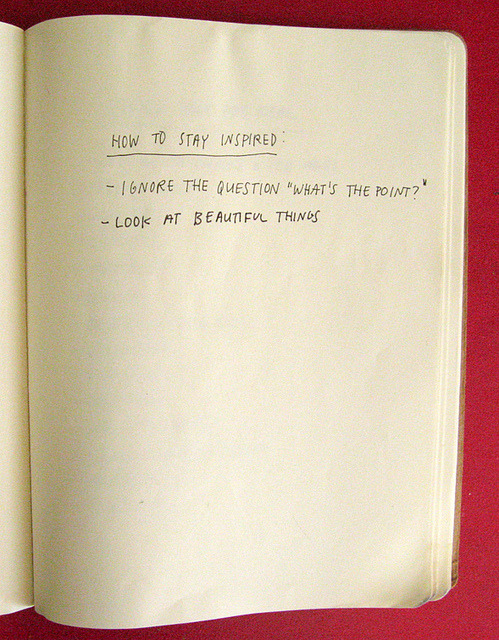 HOW TO STAY INSPIRED:
- IGNORE THE QUESTION "WHAT'S THE POINT?"
- LOOK AT BEAUTIFUL THINGS